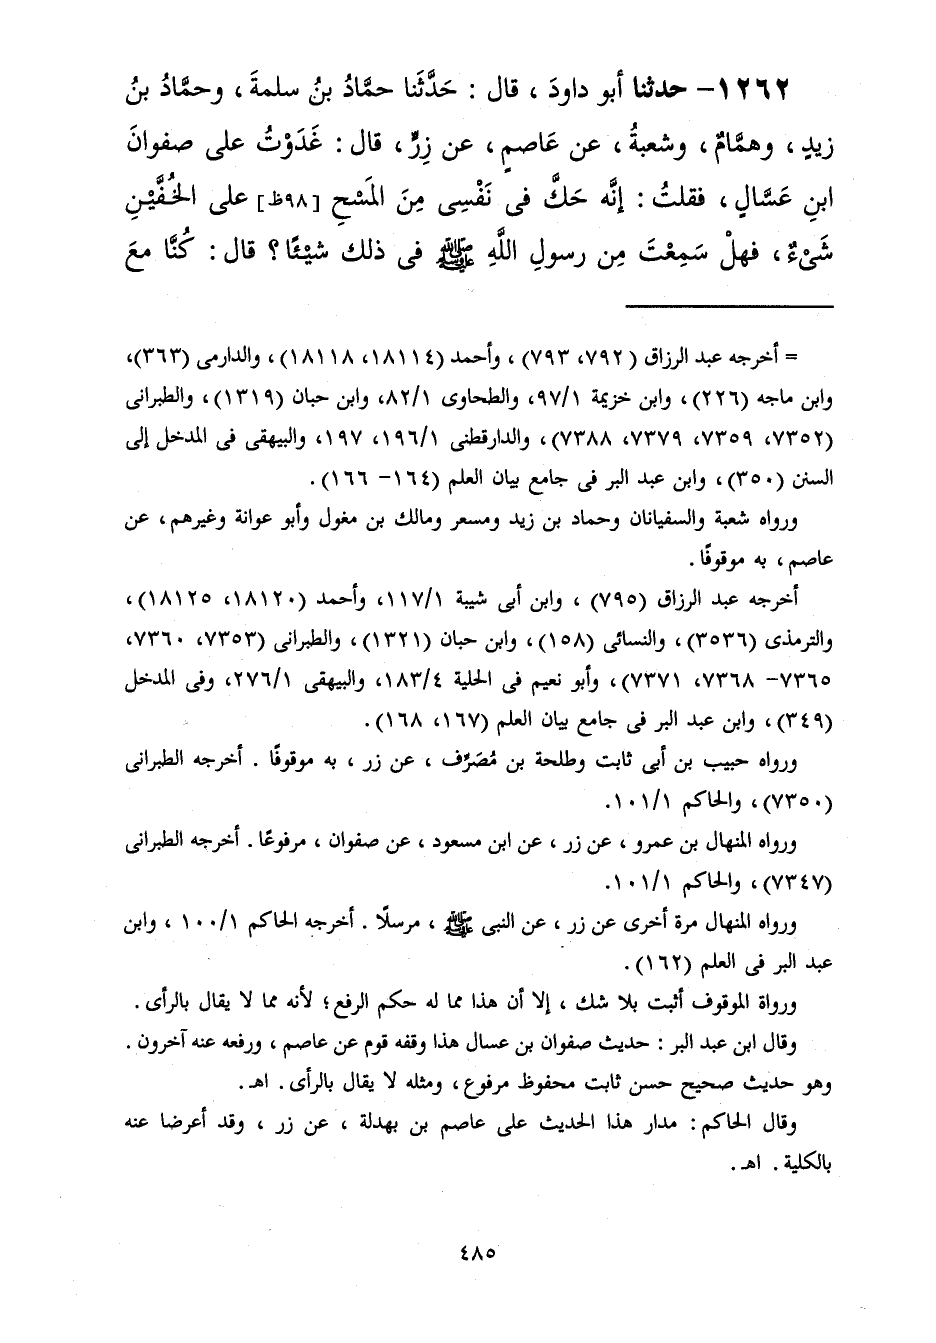 ١٢٦٢- حدثنا أبو داودَ ، قال : حَدَّثَنا حمَّادُ بنُ سلمةَ ، وحمَّادُ بنُ
زيدٍ ، وهمَّامٌ ، وشعبةُ ، عن عاصمٍ ، عن زِرٍّ ، قال : غَدَوْتُ على صفوانَ
ابنِ عَسَّالٍ ، فقلتُ : إنَّه حَكَّ فى نَفْسِى مِنَ المَسْحِ [٩٨ظ] على الخُفَّيْنِ
شَىْءٌ ، فهلْ سَمِعْتَ مِن رسولِ اللَّهِ ﷺ فى ذلك شيْئًا ؟ قال : كُنَّا معَ
= أخرجه عبد الرزاق (٧٩٢، ٧٩٣) ، وأحمد (١٨١١٤، ١٨١١٨) ، والدارمى (٣٦٣)،
وابن ماجه (٢٢٦) ، وابن خزيمة ٩٧/١، والطحاوى ٨٢/١، وابن حبان (١٣١٩) ، والطبرانى
(٧٣٥٢، ٧٣٥٩، ٧٣٧٩، ٧٣٨٨)، والدارقطنى ١٩٦/١، ١٩٧، والبيهقى فى المدخل إلى
السنن (٣٥٠) ، وابن عبد البر فى جامع بيان العلم (١٦٤- ١٦٦) .
ورواه شعبة والسفيانان وحماد بن زيد ومسعر ومالك بن مغول وأبو عوانة وغيرهم ، عن
عاصم ، به موقوفًا .
أخرجه عبد الرزاق (٧٩٥) ، وابن أبى شيبة ١١٧/١، وأحمد (١٨١٢٠، ١٨١٢٥) ،
والترمذى (٣٥٣٦) ، والنسائى (١٥٨) ، وابن حبان (١٣٢١) ، والطبرانى (٧٣٥٣، ٧٣٦٠،
٧٣٦٥- ٧٣٦٨، ٧٣٧١) ، وأبو نعيم فى الحلية ١٨٣/٤، والبيهقى ٢٧٦/١، وفى المدخل
(٣٤٩) ، وابن عبد البر فى جامع بيان العلم (١٦٧، ١٦٨) .
ورواه حبيب بن أبى ثابت وطلحة بن مُصَرِّف ، عن زر ، به موقوفًا . أخرجه الطبرانى
(٧٣٥٠) ، والحاكم ١٠١/١.
ورواه المنهال بن عمرو ، عن زر ، عن ابن مسعود ، عن صفوان ، مرفوعًا . أخرجه الطبرانى
(٧٣٤٧) ، والحاكم ١٠١/١.
ورواه المنهال مرة أخرى عن زر ، عن النبى ﷺ ، مرسلًا . أخرجه الحاكم ١٠٠/١ ، وابن
عبد البر فى العلم (١٦٢) .
ورواة الموقوف أثبت بلا شك ، إلا أن هذا مما له حكم الرفع ؛ لأنه مما لا يقال بالرأى .
وقال ابن عبد البر : حديث صفوان بن عسال هذا وقفه قوم عن عاصم ، ورفعه عنه آخرون .
وهو حديث صحيح حسن ثابت محفوظ مرفوع ، ومثله لا يقال بالرأى . اهـ .
وقال الحاكم : مدار هذا الحديث على عاصم بن بهدلة ، عن زر ، وقد أعرضا عنه
بالكلية . اهـ .
٤٨٥